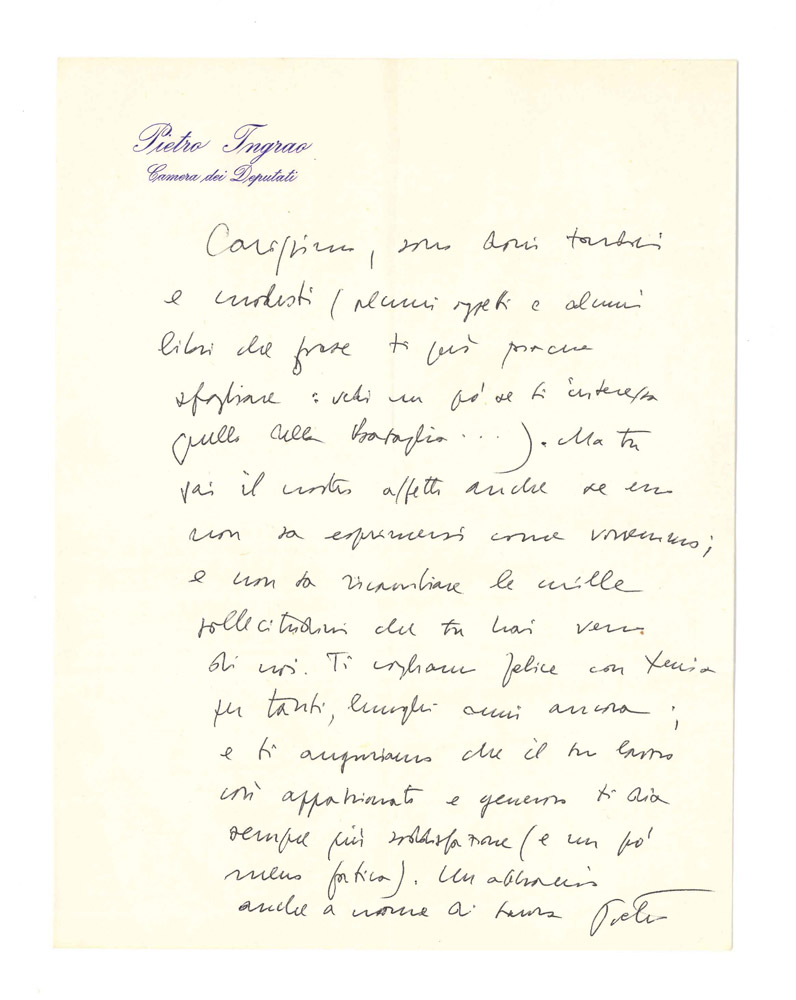 Pietro Ingrao
Camera dei Deputati
Carissimo, sono doni tardivi
e modesti (alcuni oggetti e alcuni
libri che forse ti può piacere
sfogliare: vedi un po' se ti interessa
quello della Battaglia...). Ma tu
sai il nostro affetto anche se esso
non sa esprimersi come vorremmo;
e non sa ricambiare le mille
sollecitudini che tu hai verso
di noi. Ti vogliamo felice con Xenia
per tanti, lunghi anni ancora;
e ti auguriamo che il tuo lavoro
così appassionato e generoso ti dia
sempre più soddisfazione (e un po'
meno fatica). Un abbraccio
anche a nome di Laura Pietro